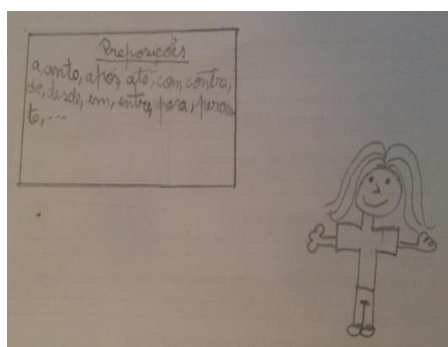 Preposições
a, ante, após, até, com, contra,
de, desde, em, entre, para, peran-
te, ...